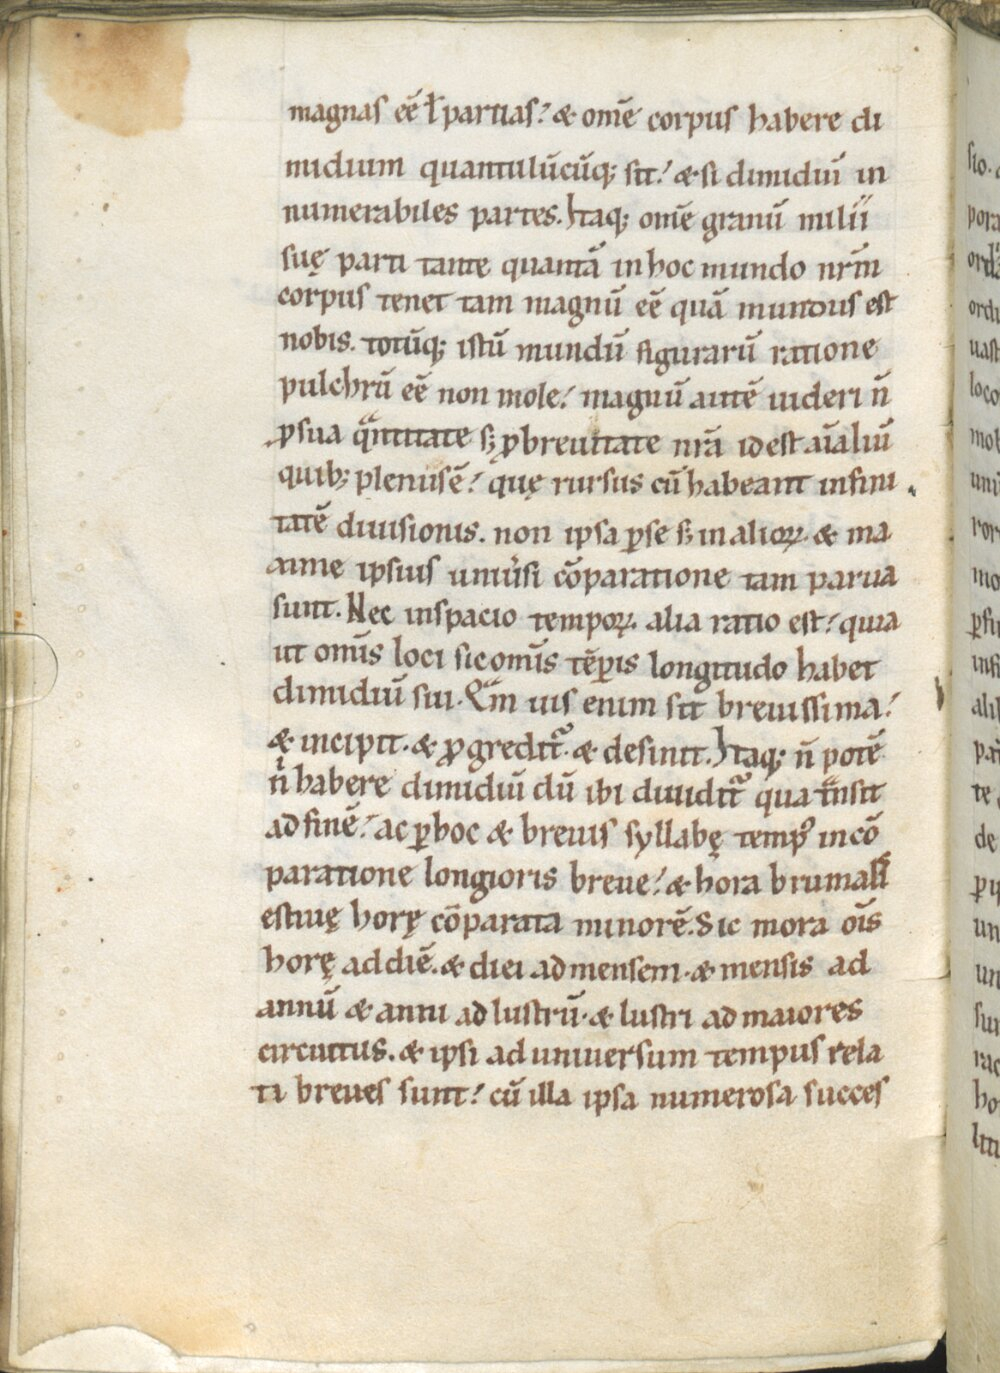 magnas eē ł partias? & om̄e corpus habere di
midium quantulūcūq; sit? & si dimidiū in
numerabiles partes. Itaq; om̄e granū milii
suę parti tante quantā in hoc mundo nr̄m
corpus tenet tam magnū eē quā mundus est
nobis. totūq; istū mundū figurarū ratione
pulchrū eē non mole? magnū autē uideri n̄
ꝑ sua qͣntitate sꝫ ꝓ breuitate nr̄a id est aīaliū
quib; plenus ē? quę rursus cū habeant infini
tatē diuisionis. non ipsa ꝑ se sꝫ in alioꝝ & ma
xime ipsius uniuͥsi cōparatione tam parua
sunt. Nec in spacio tempoꝝ alia ratio est? quia
ut om̄is loci sic om̄is tēꝑis longitudo habet
dimidiū sui. Qͣm uis enim sit breuissima?
& incipit. & ꝓgredit᷑. & desinit. Itaq; n̄ potē
n̄ habere dimidiū dū ibi diuidit᷑ qua tͣnsit
ad finē? ac ꝑ hoc & breuis syllabę temp᷒ in cō
paratione longioris breue? & hora brumalis
estiuę horę cōparata minorē. Sic mora oīs
horę ad diē. & diei ad mensem. & mensis ad
annū & anni ad lustrū. & lustri ad maiores
circuitus. & ipsi ad uniuersum tempus rela
ti breues sunt? cū illa ipsa numerosa succes